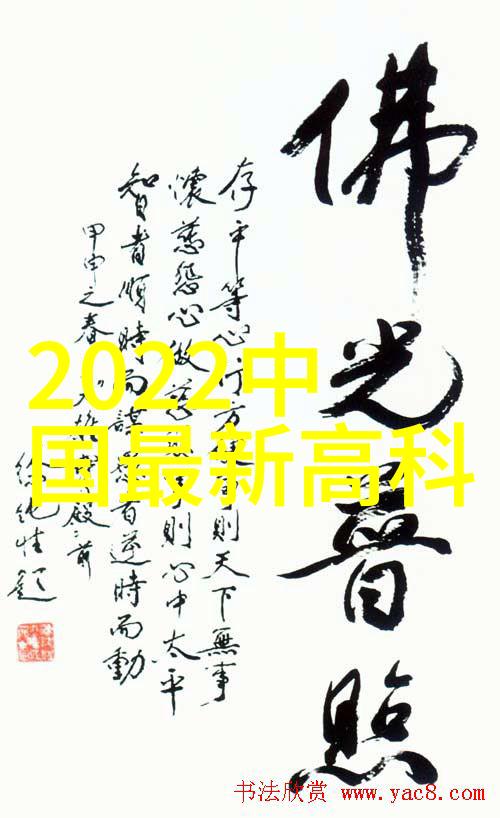 佛光普照
存平等心行方便事則天下無事
懷慈悲心做慈悲事則心中太平
智者順時而謀愚者逆時而動
甲申之春
2022中
国最新高科
书法欣赏 www.yac8.com